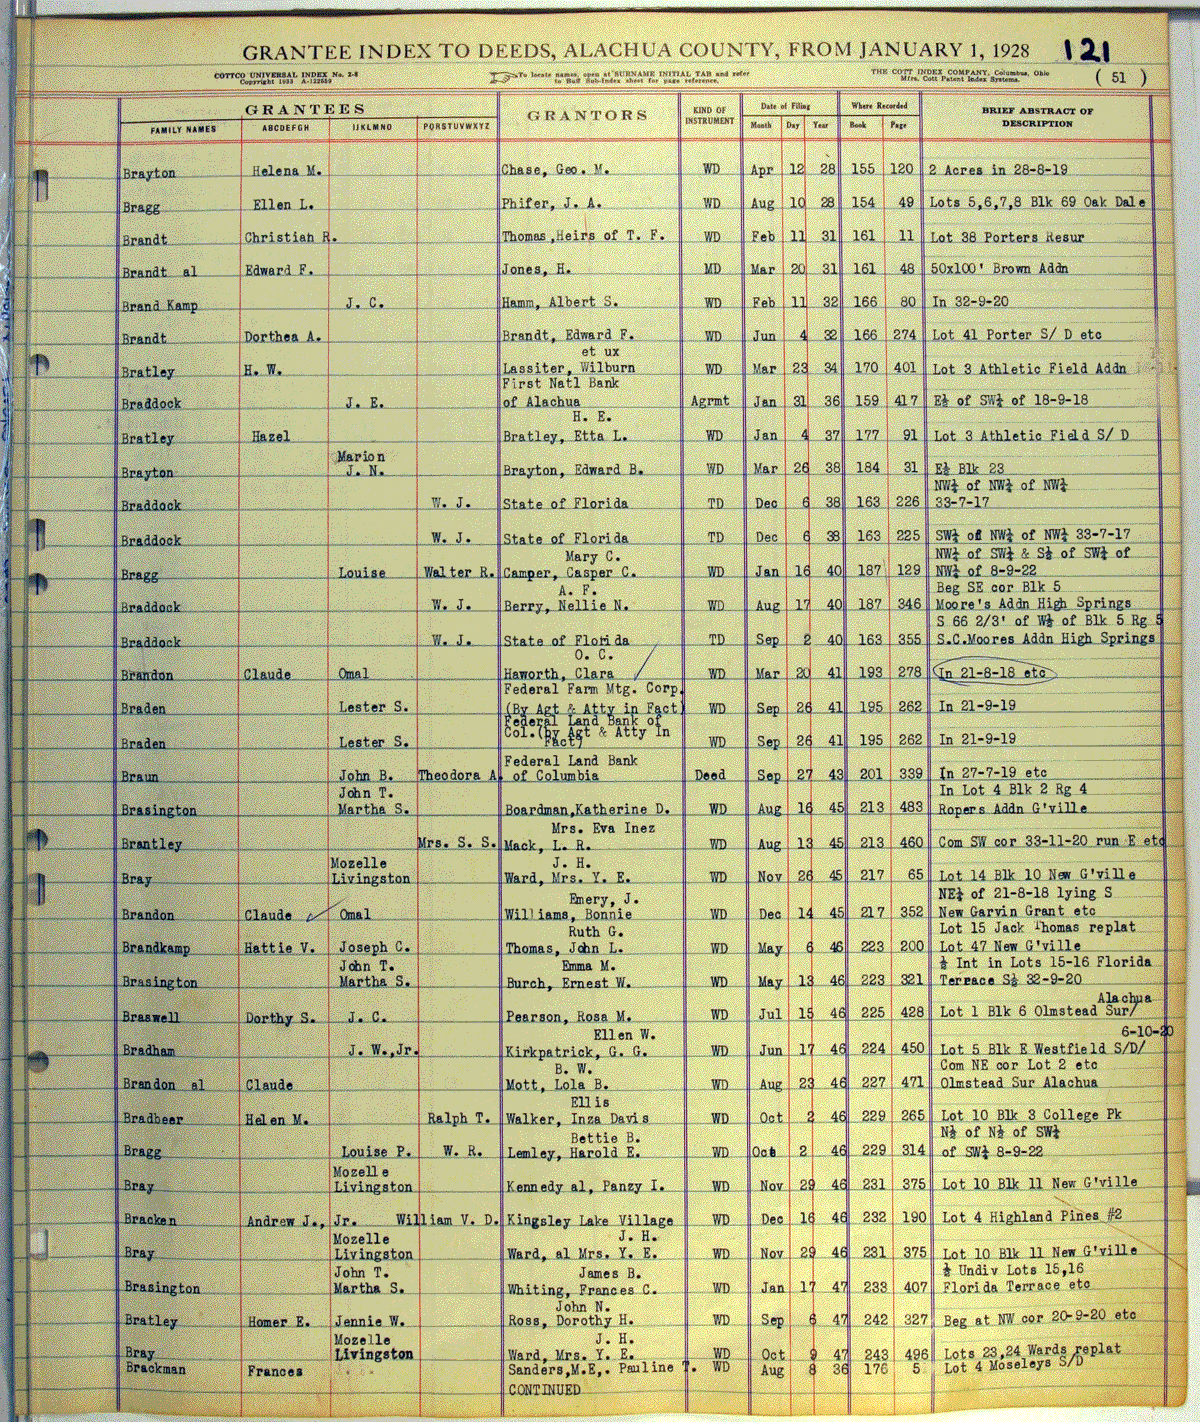 GRANTEE INDEX TO DEEDS, ALACHUA COUNTY, FROM JANUARY 1, 1928 121
COTTCO UNIVERSAL INDEX No. 2-S
Copyright 1933 A-122659
To locate names, open at SURNAME INITIAL TAB and refer
to Buff Sub-Index sheet for page reference.
THE COTT INDEX COMPANY, Columbus, Ohio
Mfrs. Cott Patent Index Systems.
( 51 )
GRANTEES GRANTORS KIND OF INSTRUMENT Date of Filing Where Recorded BRIEF ABSTRACT OF DESCRIPTION
FAMILY NAMES ABCDEFGH IJKLMNO PQRSTUVWXYZ Month Day Year Book Page
Brayton Helena M. Chase, Geo. M. WD Apr 12 28 155 120 2 Acres in 28-8-19
Bragg Ellen L. Phifer, J. A. WD Aug 10 28 154 49 Lots 5,6,7,8 Blk 69 Oak Dale
Brandt Christian R. Thomas,Heirs of T. F. WD Feb 11 31 161 11 Lot 38 Porters Resur
Brandt al Edward F. Jones, H. MD Mar 20 31 161 48 50x100' Brown Addn
Brand Kamp J. C. Hamm, Albert S. WD Feb 11 32 166 80 In 32-9-20
Brandt Dorthea A. Brandt, Edward F. WD Jun 4 32 166 274 Lot 41 Porter S/ D etc
et ux
Bratley H. W. Lassiter, Wilburn WD Mar 23 34 170 401 Lot 3 Athletic Field Addn
First Natl Bank
Braddock J. E. of Alachua Agrmt Jan 31 36 159 417 E½ of SW¼ of 18-9-18
H. E.
Bratley Hazel Bratley, Etta L. WD Jan 4 37 177 91 Lot 3 Athletic Field S/ D
Marion
Brayton J. N. Brayton, Edward B. WD Mar 26 38 184 31 E½ Blk 23
NW¼ of NW¼ of NW¼
Braddock W. J. State of Florida TD Dec 6 38 163 226 33-7-17
Braddock W. J. State of Florida TD Dec 6 38 163 225 SW¼ of NW¼ of NW¼ 33-7-17
Mary C. NW¼ of SW¼ & S½ of SW¼ of
Bragg Louise Walter R. Camper, Casper C. WD Jan 16 40 187 129 NW¼ of 8-9-22
A. F. Beg SE cor Blk 5
Braddock W. J. Berry, Nellie N. WD Aug 17 40 187 346 Moore's Addn High Springs
S 66 2/3' of W½ of Blk 5 Rg 5
Braddock W. J. State of Florida TD Sep 2 40 163 355 S.C.Moores Addn High Springs
O. C.
Brandon Claude Omal Haworth, Clara WD Mar 20 41 193 278 In 21-8-18 etc
Federal Farm Mtg. Corp.
Braden Lester S. (By Agt & Atty in Fact) WD Sep 26 41 195 262 In 21-9-19
Federal Land Bank of
Col.(by Agt & Atty in
Braden Lester S. Fact) WD Sep 26 41 195 262 In 21-9-19
Federal Land Bank
Braun John B. Theodora A. of Columbia Deed Sep 27 43 201 339 In 27-7-19 etc
John T. In Lot 4 Blk 2 Rg 4
Brasington Martha S. Boardman,Katherine D. WD Aug 16 45 213 483 Ropers Addn G'ville
Mrs. Eva Inez
Brantley Mrs. S. S. Mack, L. R. WD Aug 13 45 213 460 Com SW cor 33-11-20 run E etc
Mozelle J. H.
Bray Livingston Ward, Mrs. Y. E. WD Nov 26 45 217 65 Lot 14 Blk 10 New G'ville
Emery, J. NE¼ of 21-8-18 lying S
Brandon Claude Omal Williams, Bonnie WD Dec 14 45 217 352 New Garvin Grant etc
Ruth G. Lot 15 Jack Thomas replat
Brandkamp Hattie V. Joseph C. Thomas, John L. WD May 6 46 223 200 Lot 47 New G'ville
John T. Emma M. ½ Int in Lots 15-16 Florida
Brasington Martha S. Burch, Ernest W. WD May 13 46 223 321 Terrace S½ 32-9-20
Alachua
Braswell Dorthy S. J. C. Pearson, Rosa M. WD Jul 15 46 225 428 Lot 1 Blk 6 Olmstead Sur/
Ellen W. 6-10-20
Bradham J. W.,Jr. Kirkpatrick, G. G. WD Jun 17 46 224 450 Lot 5 Blk E Westfield S/D/
B. W. Com NE cor Lot 2 etc
Brandon al Claude Mott, Lola B. WD Aug 23 46 227 471 Olmstead Sur Alachua
Ellis
Bradbeer Helen M. Ralph T. Walker, Inza Davis WD Oct 2 46 229 265 Lot 10 Blk 3 College Pk
Bettie B. N½ of N½ of SW¼
Bragg Louise P. W. R. Lemley, Harold E. WD Oct 2 46 229 314 of SW¼ 8-9-22
Mozelle
Bray Livingston Kennedy al, Panzy I. WD Nov 29 46 231 375 Lot 10 Blk 11 New G'ville
Bracken Andrew J., Jr. William V. D. Kingsley Lake Village WD Dec 16 46 232 190 Lot 4 Highland Pines #2
Mozelle J. H.
Bray Livingston Ward, al Mrs. Y. E. WD Nov 29 46 231 375 Lot 10 Blk 11 New G'ville
John T. James B. ½ Undiv Lots 15,16
Brasington Martha S. Whiting, Frances C. WD Jan 17 47 233 407 Florida Terrace etc
John N.
Bratley Homer E. Jennie W. Ross, Dorothy H. WD Sep 6 47 242 327 Beg at NW cor 20-9-20 etc
Mozelle J. H.
Bray Livingston Ward, Mrs. Y. E. WD Oct 9 47 243 496 Lots 23,24 Wards replat
Brackman Frances Sanders,M.E,. Pauline T. WD Aug 8 36 176 5 Lot 4 Moseleys S/D
CONTINUED